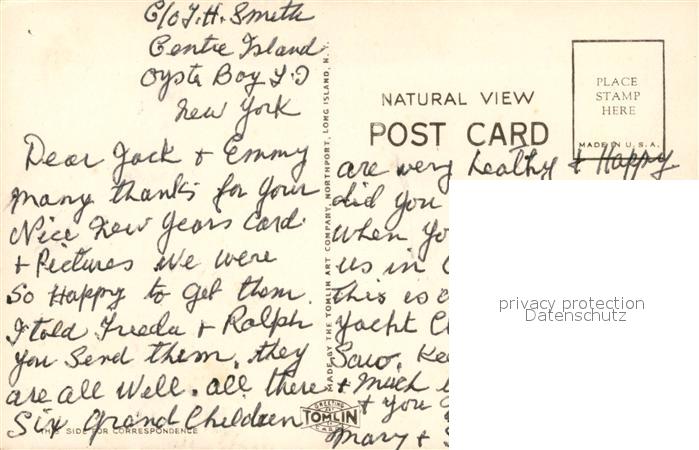 C/o T. H. Smith
Centre Island
Oyster Bay L.I
New York
Dear Jack + Emmy
Many thanks for your
Nice New Years Card
+ Pictures We were
So Happy to get them.
I told Freeda + Ralph
You Send them. they
are all Well. all there
Six Grand Children
THIS SIDE FOR CORRESPONDENCE
MADE BY THE TOMLIN ART COMPANY, NORTHPORT, LONG ISLAND, N. Y.
GREETING
TOMLIN
CARDS
NATURAL VIEW
POST CARD
PLACE
STAMP
HERE
MADE IN U.S.A.
are very healthy + Happy
did You
When Yo
us in
This is
Yacht Cl
Saw. Kee
+ Much
+ You
Mary +
privacy protection
Datenschutz